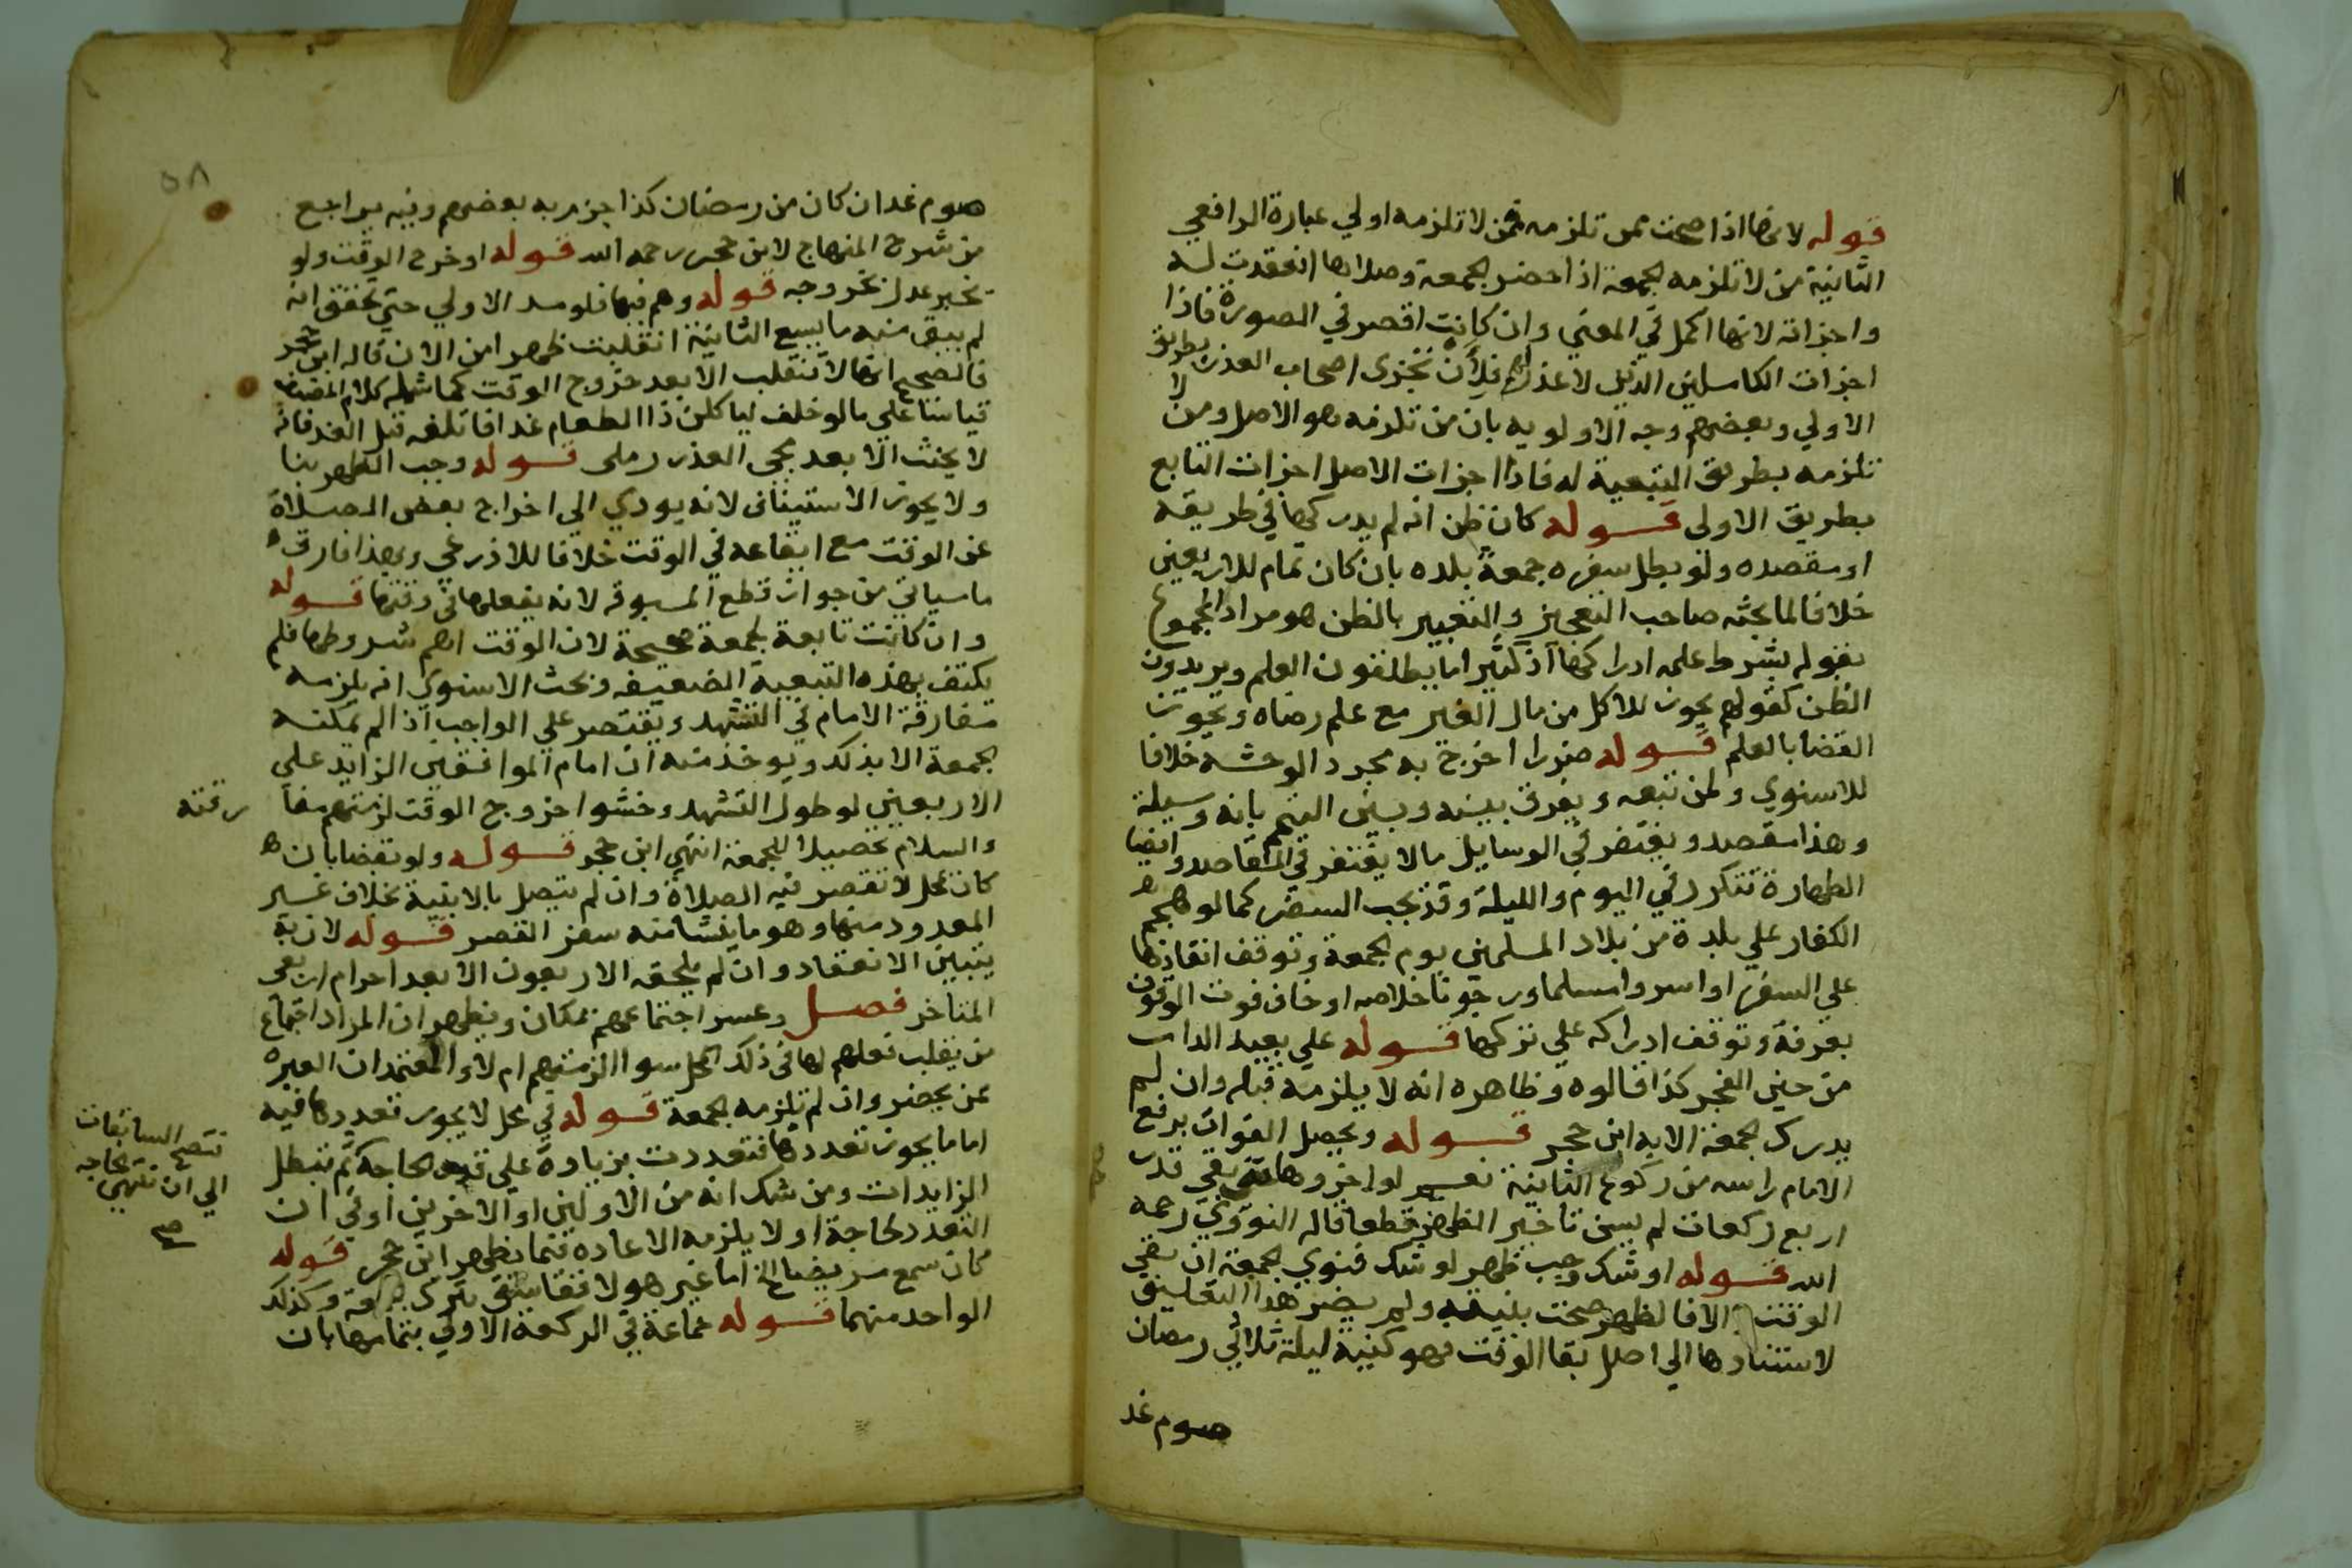 قوله لانها اذا صحت ممن تلزمه فمن لا تلزمه اولي عبارة الرافعي
الثانية من لا تلزمه الجمعة اذا حضر الجمعة وصلاها انعقدت له
واجزاته لانها اكمل في المعني وان كانت اقصر في الصورة فاذا
اجزات الكاملين الذين لا عذر لهم فلأن تجزى اصحاب العذر بطريق
الاولي وبعضهم وجه الاولويه بان من تلزمه هو الاصل ومن لا
تلزمه بطريق التبعية له فاذا اجزات الاصل اجزات التابع
بطريق الاولى قوله كان ظن انه لم يدركها في طريقه
او مقصده ولو بطل سفره جمعة بلده بان كان تمام الاربعين
خلافا لما بحثه صاحب التعجيز والتعبير بالظن هو مراد المجموع
بقوله بشرط علمه ادراكها اذ كثيرا ما يطلقون العلم ويريدون
الظن كقولهم يجوز للاكل من مال الغير مع علم رضاه ويجوز
القضا بالعلم قوله ضررا اخرج به مجرد الوحشه خلافا
للاسنوي ولمن تبعه ويفرق بينه وبين التيمم بانه وسيلة
وهذا مقصد ويغتفر في الوسايل ما لا يغتفر في المقاصد وايضا
الطهارة تتكرر في اليوم والليلة وقد يجب السفر كما لو هجم
الكفار علي بلدة من بلاد المسلمين يوم الجمعة وتوقف انقاذها
علي السفر او اسروا مسلما ورجونا خلاصه او خاف فوت الوقوف
بعرفة وتوقف ادراكه علي تركها قوله علي بعيد الدار
من حين الفجر كذا قالوه وظاهره انه لا يلزمه قبله وان لم
يدرك الجمعة الا به ابن حجر قوله ويحصل الفوات برفع
الامام راسه من ركوع الثانية نعم لو اخروها حتى بقي قدر
اربع ركعات لم يسن تاخير الظهر قطعا قاله النووي رحمه
الله قوله او شك وجب ظهر لو شك فنوي الجمعة ان بقي
الوقت والا فالظهر صحت بنيته ولم يضر هذا التعليق
لاستنادها الي اصل بقا الوقت فهو كنية ليلة ثلاثي رمضان
صوم غد
٥٨
صوم غد ان كان من رمضان كذا جزم به بعضهم وفيه يراجع
من شرح المنهاج لابن حجر رحمه الله قوله او خرج الوقت ولو
بخبر عدل بخروجه قوله وهم فيها فلو مد الاولي حتي تحقق انه
لم يبق منه ما يسع الثانية انقلبت ظهرا من الان قاله ابن حجر
فالصحيح انها لا تنقلب الا بعد خروج الوقت كما شمله كلام المصنف
قياسا علي ما لو حلف لياكلن ذا الطعام غدا فاتلفه قبل الغد فانه
لا يحنث الا بعد مجي الغد رملى قوله وجب الظهر بنا
ولا يجوز الاستيناف لانه يودي الي اخراج بعض الصلاة
عن الوقت مع ايقاعه في الوقت خلافا للاذرعي وبهذا فارق
ما سياتي من جواز قطع المسبوق لانه يفعلها في وقتها قوله
وان كانت تابعة لجمعة صحيحة لان الوقت اهم شروطها فلم
يكتف بهذه التبعية الضعيفه وبحث الاسنوي انه يلزمه
مفارقة الامام في التشهد ويقتصر علي الواجب اذا لم تمكنه
الجمعة الا بذلك ويوخذ منه ان امام الموافقين الزايد علي
الاربعين لو طول التشهد وخشوا خروج الوقت لزمتهم مفا
رقته
والسلام تحصيلا للجمعة انتهي ابن حجر قوله ولو بفضا بان
كان بمحل لا تقصر فيه الصلاة وان لم يتصل بالابنية بخلاف غير
المعدود منها وهو ما ينشا منه سفر القصر قوله لان به
يتبين الانعقاد وان لم يلحقه الاربعون الا بعد احرام اربعى
المتاخر فصل وعسر اجتماعهم بمكان ويظهر ان المراد اجتماع
من يغلب فعلهم لها في ذلك المحل سوا الزمتهم ام لا والمعتمد ان العبره
بمن يحضر وان لم تلزمه الجمعة قوله في محل لا يجوز تعددها فيه
اما ما يجوز تعددها فتعددت بزيادة علي قدر الحاجة ثم تبطل
تصح السابقات
الي ان تنتهي الحاجه
صح
الزايدات ومن شك انه من الاولين او الاخرين او في ان
التعدد لحاجة او لا يلزمه الاعادة فيما يظهر ابن حجر قوله
كان سمع مريضا الخ اما غير هولا
الواحد منهما قوله جماعة في الركعة الاولي بتمامها بان